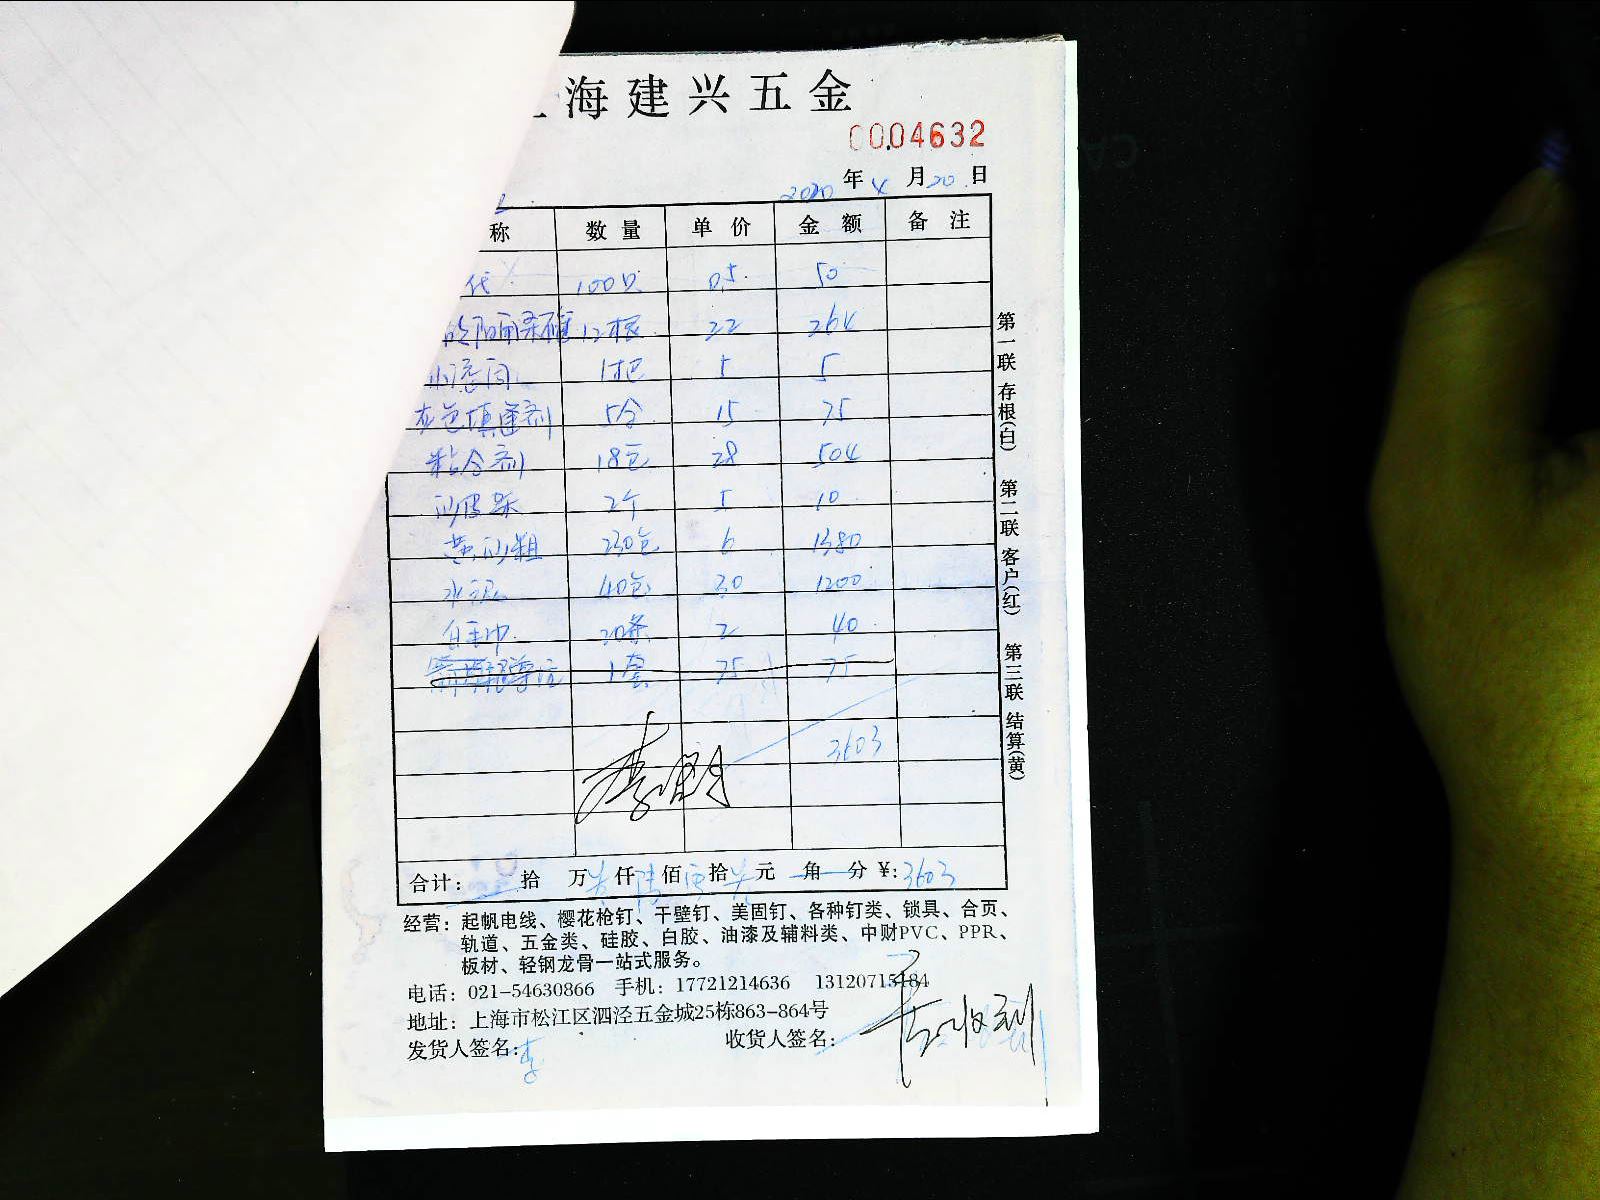 上海建兴五金
0004632
2020年4月20日
称 数量 单价 金额 备注
代 100只 0.5 50
12根 22 264
1把 5 5
灰色填缝剂 5包 15 75
粘合剂 18包 28 504
2个 5 10
黄沙粗 230包 6 1380
水泥 40包 30 1200
白毛巾 20条 2 40
1套 75 75
3603
合计: 拾 万 叁仟 陆佰 零拾 叁元 角 分 ¥:3603
第一联 存根(白) 第二联 客户(红) 第三联 结算(黄)
经营:起帆电线、樱花枪钉、干壁钉、美固钉、各种钉类、锁具、合页、
轨道、五金类、硅胶、白胶、油漆及辅料类、中财PVC、PPR、
板材、轻钢龙骨一站式服务。
电话:021-54630866 手机:17721214636 13120715184
地址:上海市松江区泗泾五金城25栋863-864号
发货人签名:李 收货人签名: